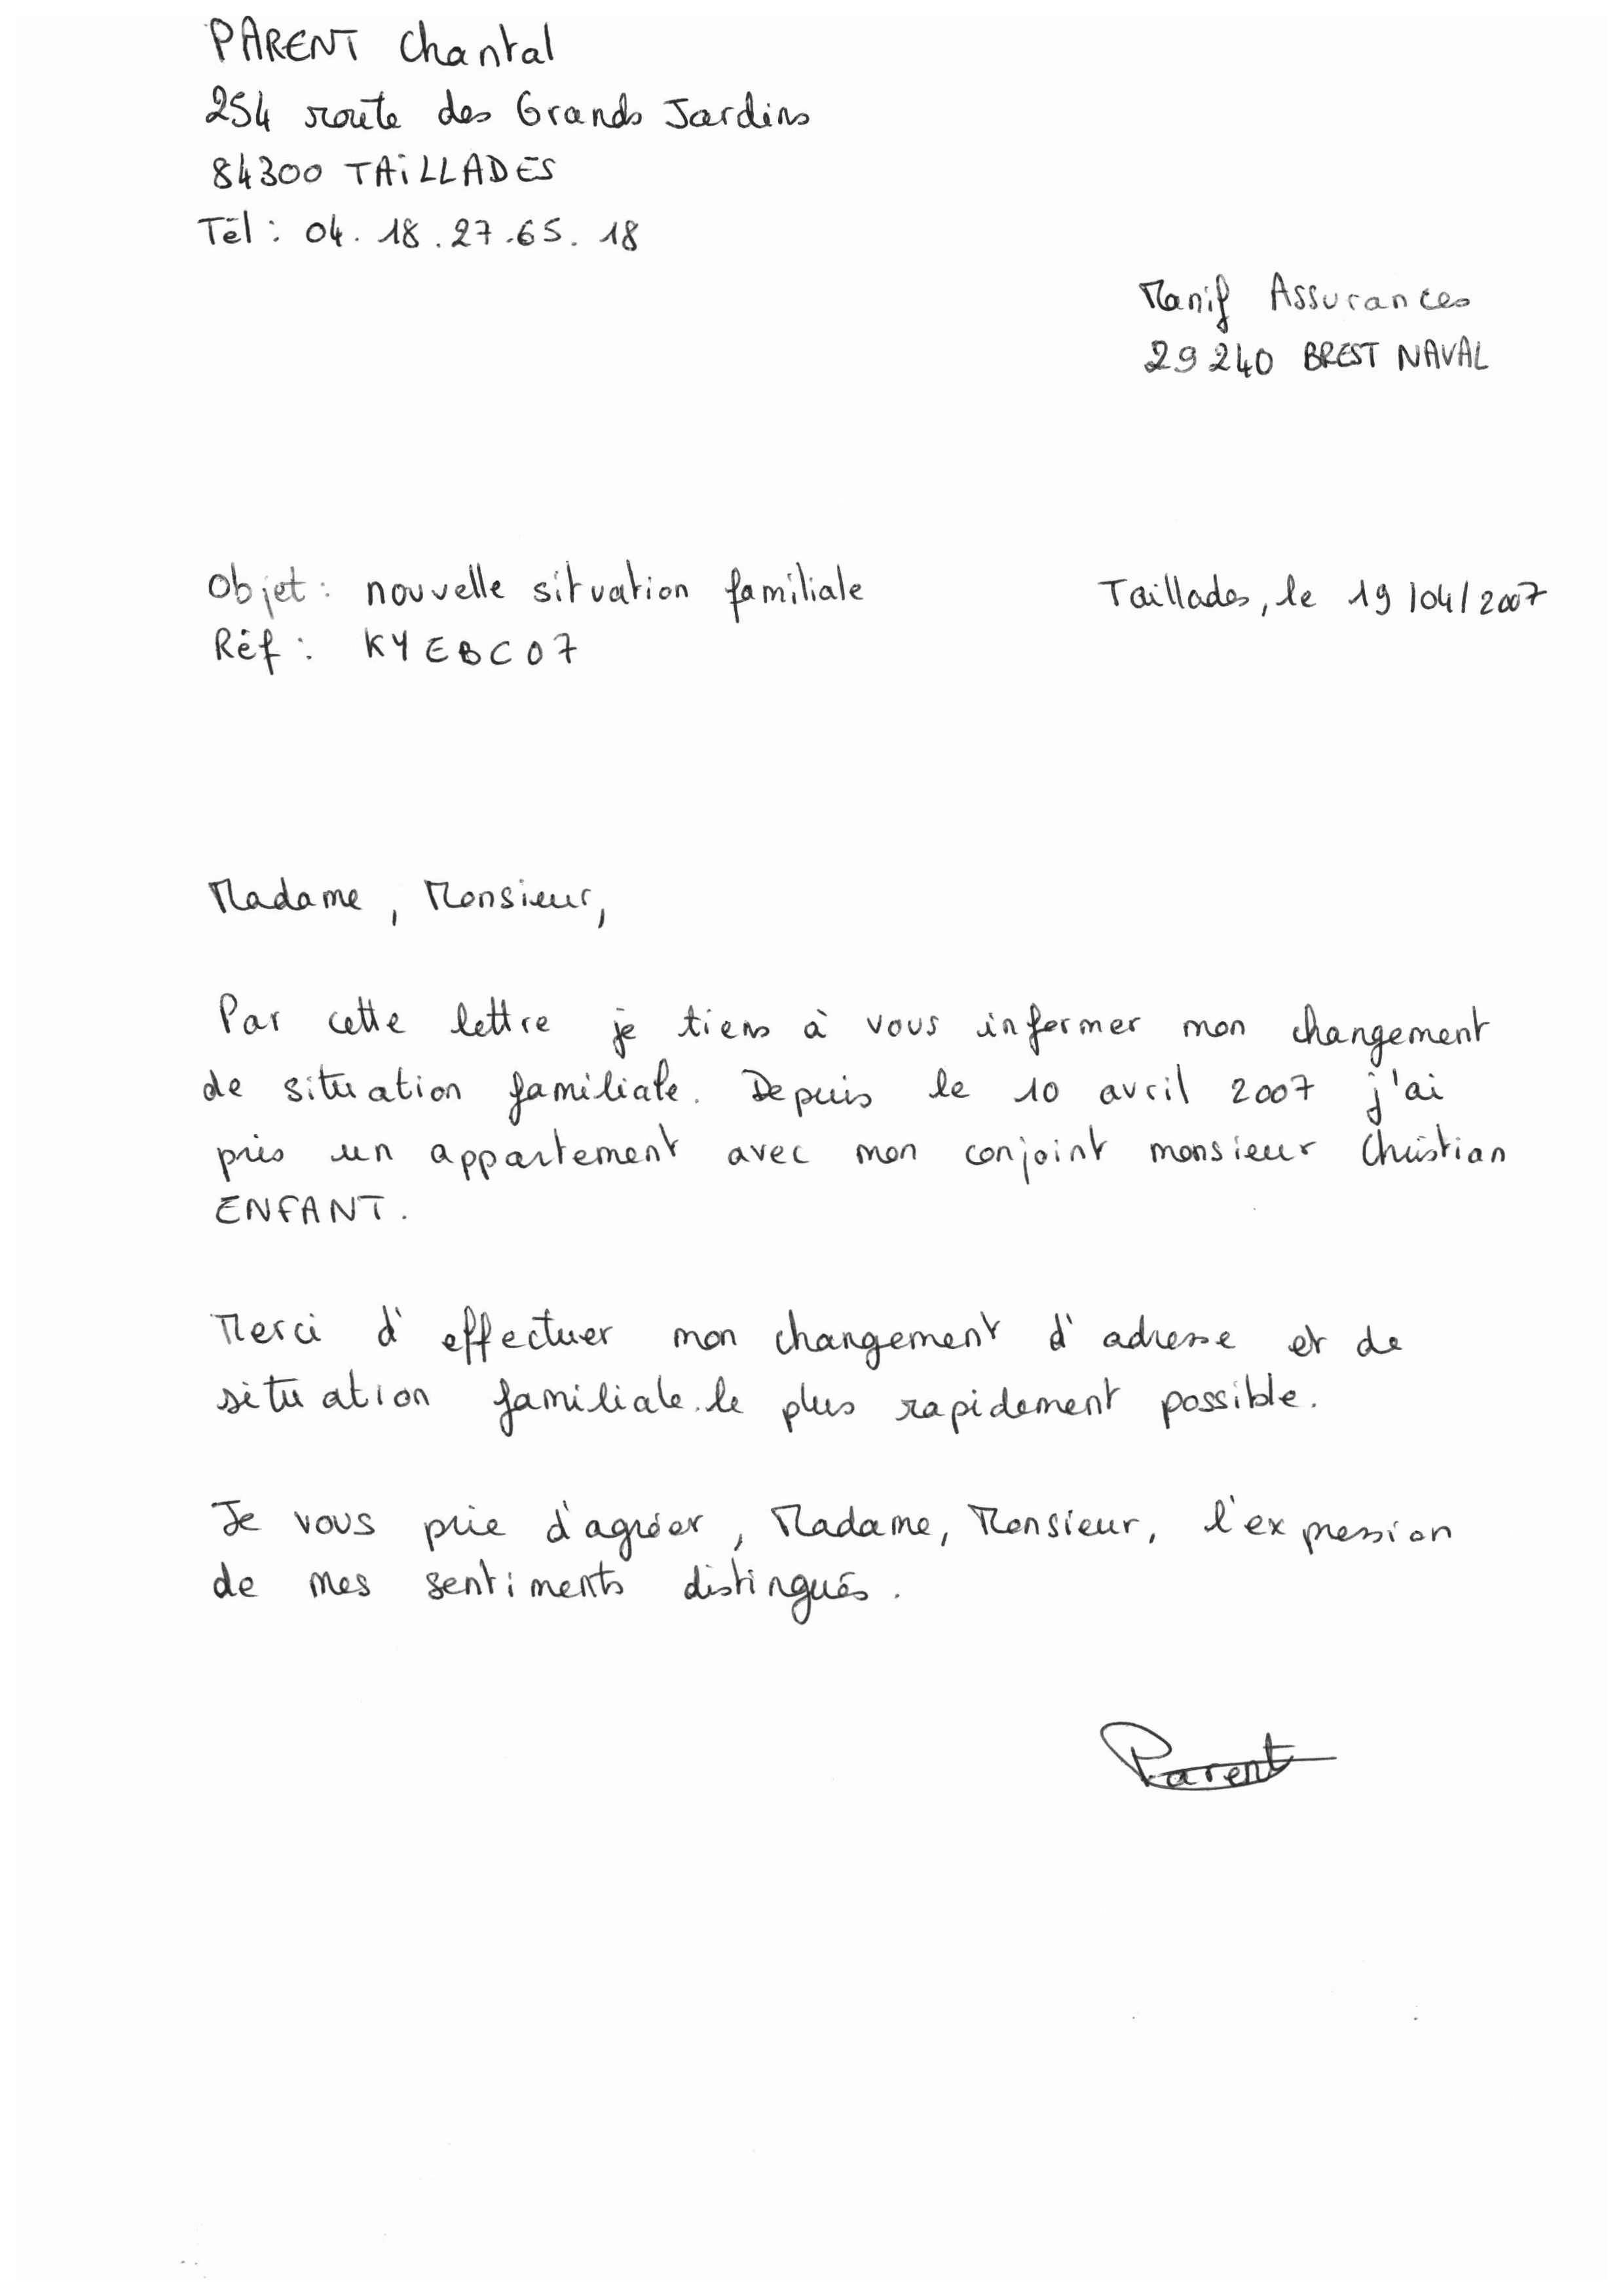 PARENT Chantal
254 route des Grands Jardins
84300 TAiLLADES
Tél : 04. 18. 27. 65. 18
Manif Assurances
29240 BREST NAVAL
Objet : nouvelle situation familiale
Taillades, le 19/04/2007
Réf : KYEBC07
Madame, Monsieur,
Par cette lettre je tiens à vous informer mon changement
de situation familiale. Depuis le 10 avril 2007 j'ai
pris un appartement avec mon conjoint monsieur Christian
ENFANT.
Merci d'effectuer mon changement d'adresse et de
situation familiale le plus rapidement possible.
Je vous prie d'agréer, Madame, Monsieur, l'expression
de mes sentiments distingués.
Parent